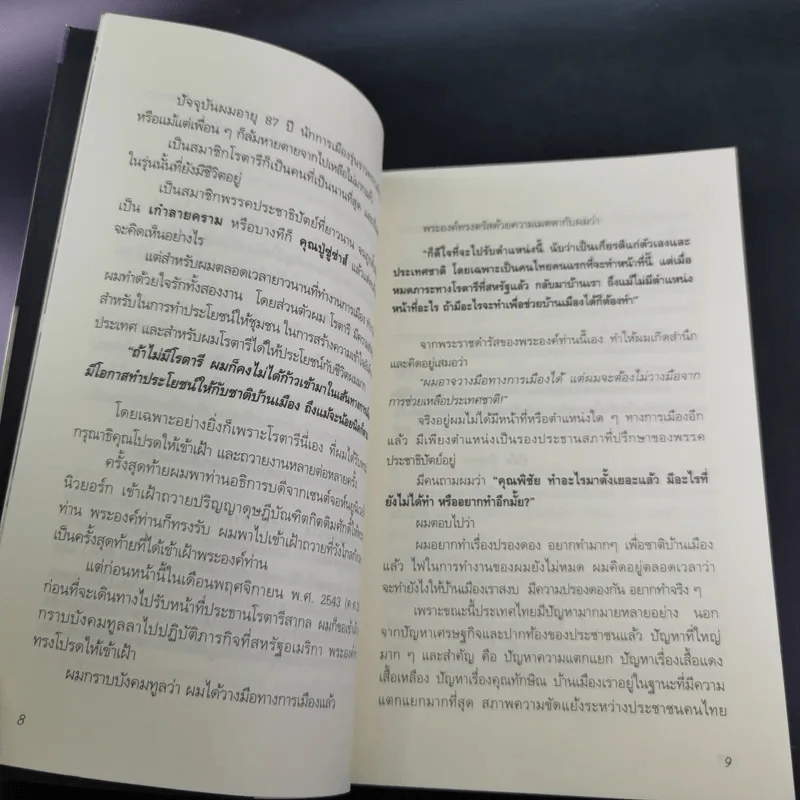 ปัจจุบันผมอายุ 87 ปี นักการเมืองรุ่นราว
หรือแม้แต่เพื่อน ๆ ก็ล้มหายตายจากไปเหลือไม่มากแล้ว
เป็นสมาชิกโรตารีก็เป็นคนที่เป็นนานที่สุด
ในรุ่นนั้นที่ยังมีชีวิตอยู่
เป็นสมาชิกพรรคประชาธิปัตย์ที่ยาวนาน
เป็น เก๋าลายคราม หรือบางทีก็ คุณปู่ซู่ซ่าส์ แล้วแต่
จะคิดเห็นอย่างไร
แต่สำหรับผมตลอดเวลายาวนานที่ทำงานการเมือง
ผมทำด้วยใจรักทั้งสองงาน โดยส่วนตัวผม โรตารี
สำหรับในการทำประโยชน์ให้ชุมชน ในการสร้างความเข้าใจ
ประเทศ และสำหรับผมโรตารีได้ให้ประโยชน์กับชีวิตผมมาก
"ถ้าไม่มีโรตารี ผมก็คงไม่ได้ก้าวเข้ามาในเส้นทางการเมือง
มีโอกาสทำประโยชน์ให้กับชาติบ้านเมือง ถึงแม้จะน้อยนิดก็ตาม
โดยเฉพาะอย่างยิ่งก็เพราะโรตารีนี่เอง ที่ผมได้รับ
กรุณาธิคุณโปรดให้เข้าเฝ้า และถวายงานหลายต่อหลายครั้ง
ครั้งสุดท้ายผมพาท่านอธิการบดีจากเซนต์จอห์นยูนิเวอร์
นิวยอร์ก เข้าเฝ้าถวายปริญญาดุษฎีบัณฑิตกิตติมศักดิ์ให้
ท่าน พระองค์ท่านก็ทรงรับ ผมพาไปเข้าเฝ้าถวายที่วังไกลกังวล
เป็นครั้งสุดท้ายที่ได้เข้าเฝ้าพระองค์ท่าน
แต่ก่อนหน้านี้ในเดือนพฤศจิกายน พ.ศ. 2543 (ค.ศ.
ก่อนที่จะเดินทางไปรับหน้าที่ประธานโรตารีสากล ผมก็ขอเข้าเฝ้า
กราบบังคมทูลลาไปปฏิบัติภารกิจที่สหรัฐอเมริกา พระองค์
ทรงโปรดให้เข้าเฝ้า
ผมกราบบังคมทูลว่า ผมได้วางมือทางการเมืองแล้ว
8
พระองค์ทรงตรัสด้วยความเมตตากับผมว่า
"ก็ดีใจที่จะไปรับตำแหน่งนี้ นับว่าเป็นเกียรติแก่ตัวเองและ
ประเทศชาติ โดยเฉพาะเป็นคนไทยคนแรกที่จะทำหน้าที่นี้ แต่เมื่อ
หมดภาระทางโรตารีที่สหรัฐแล้ว กลับมาบ้านเรา ถึงแม้ไม่มีตำแหน่ง
หน้าที่อะไร ถ้ามีอะไรจะทำเพื่อช่วยบ้านเมืองได้ก็ต้องทำ"
จากพระราชดำรัสของพระองค์ท่านนี้เอง ทำให้ผมเกิดสำนึก
และคิดอยู่เสมอว่า
"ผมอาจวางมือทางการเมืองได้ แต่ผมจะต้องไม่วางมือจาก
การช่วยเหลือประเทศชาติ!"
จริงอยู่ผมไม่ได้มีหน้าที่หรือตำแหน่งใด ๆ ทางการเมืองอีก
แล้ว มีเพียงตำแหน่งเป็นรองประธานสภาที่ปรึกษาของพรรค
ประชาธิปัตย์อยู่
มีคนถามผมว่า "คุณพิชัย ทำอะไรมาตั้งเยอะแล้ว มีอะไรที่
ยังไม่ได้ทำ หรืออยากทำอีกมั้ย?"
ผมตอบไปว่า
ผมอยากทำเรื่องปรองดอง อยากทำมากๆ เพื่อชาติบ้านเมือง
แล้ว ไฟในการทำงานของผมยังไม่หมด ผมคิดอยู่ตลอดเวลาว่า
จะทำยังไงให้บ้านเมืองเราสงบ มีความปรองดองกัน อยากทำจริง ๆ
เพราะขณะนี้ประเทศไทยมีปัญหามากมายหลายอย่าง นอก
จากปัญหาเศรษฐกิจและปากท้องของประชาชนแล้ว ปัญหาที่ใหญ่
มาก ๆ และสำคัญ คือ ปัญหาความแตกแยก ปัญหาเรื่องเสื้อแดง
เสื้อเหลือง ปัญหาเรื่องคุณทักษิณ บ้านเมืองเราอยู่ในฐานะที่มีความ
แตกแยกมากที่สุด สภาพความขัดแย้งระหว่างประชาชนคนไทย
9